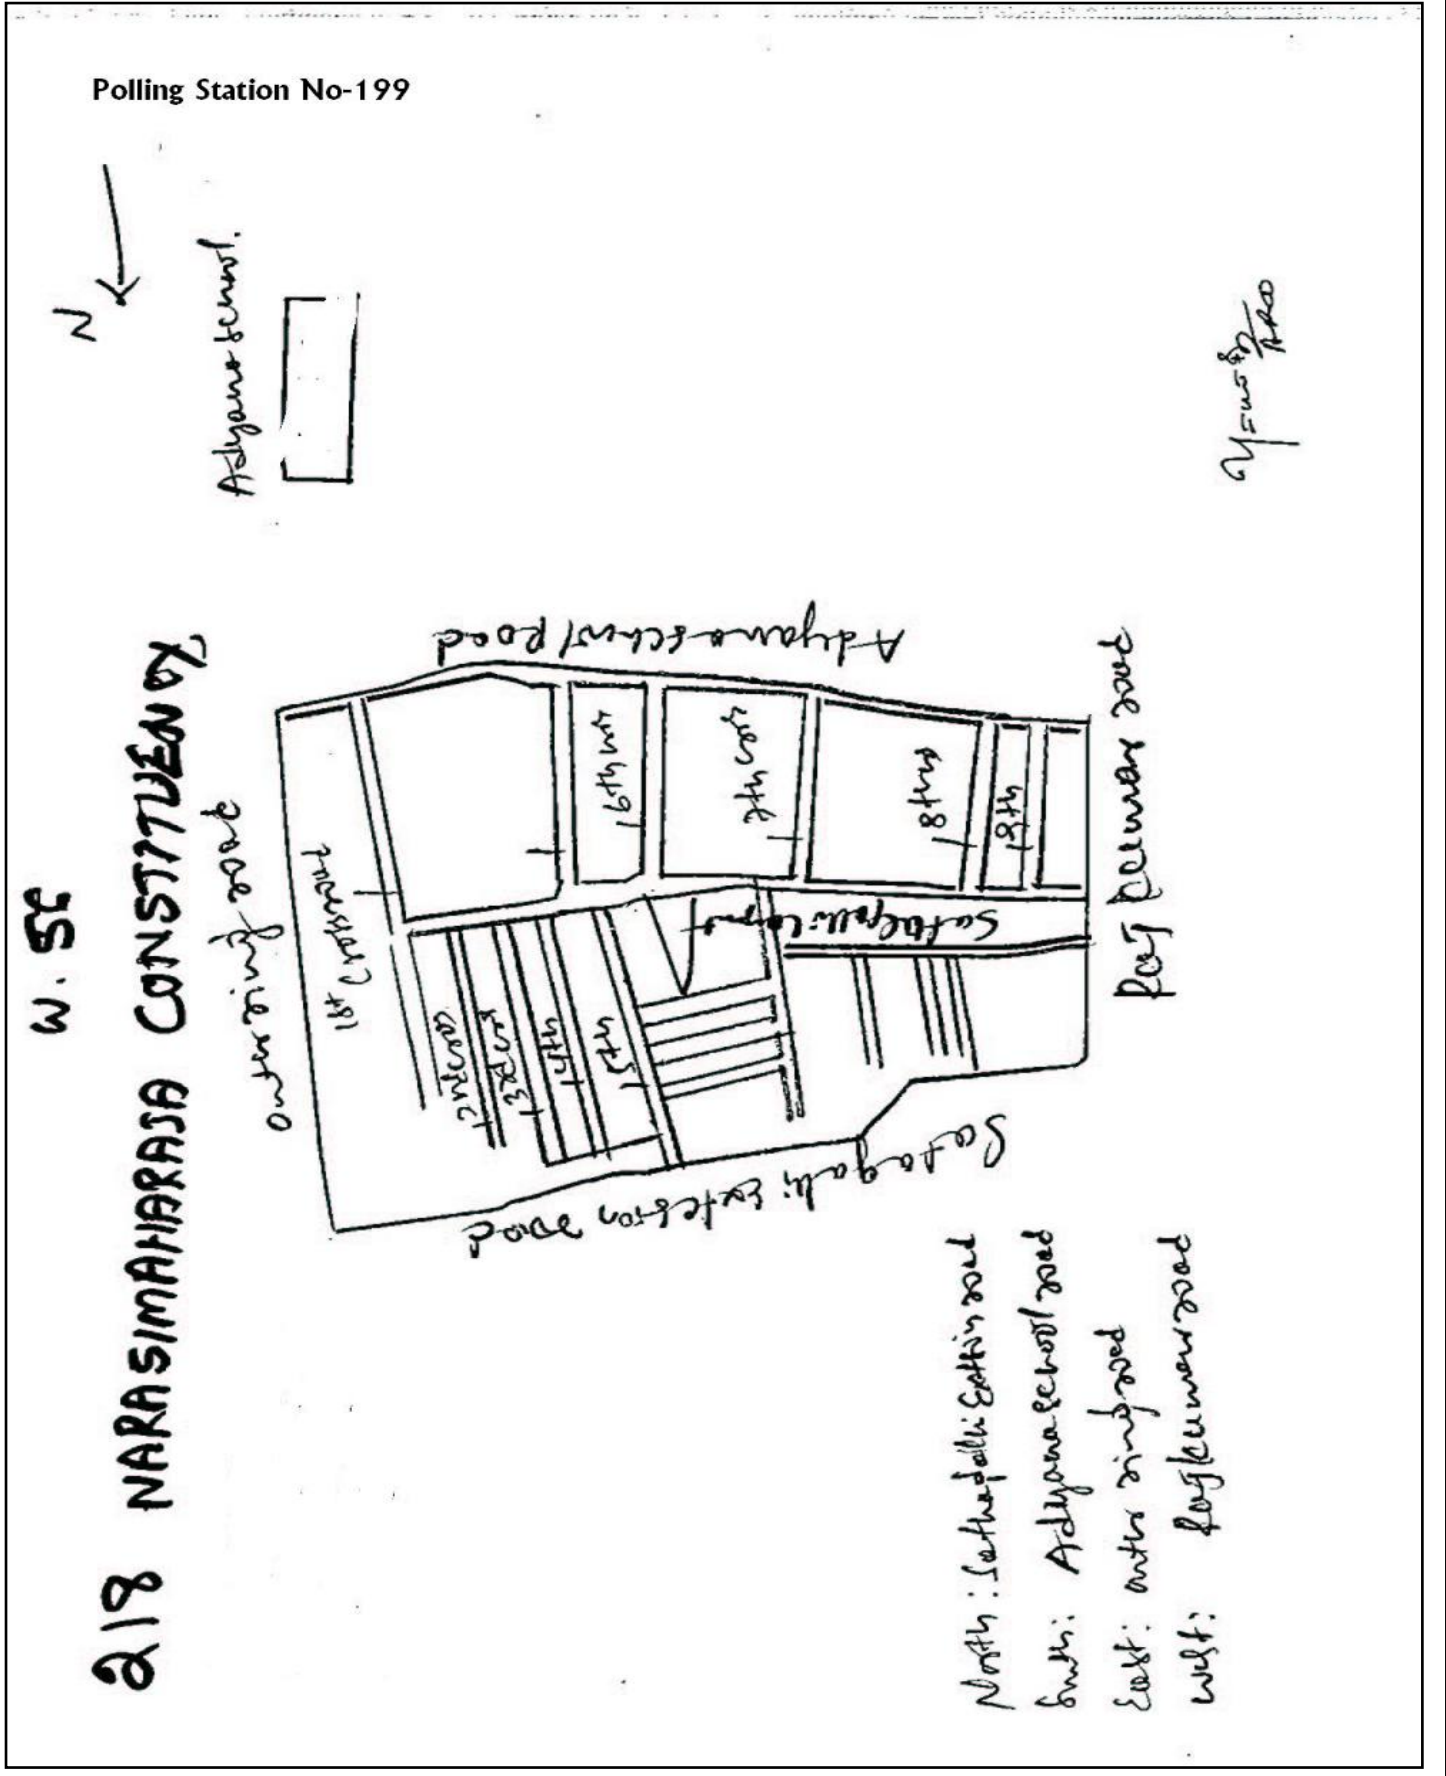 Polling Station No-199
W. 5C
218 NARASIMAHARAJA CONSTITUENCY
N
Adyana school.
outer ring road
Adyana school Road
1st Crossroad
2nd cross
3rd cross
4th
5th
6th
7th cross
8th
8th
Raj kumar road
Satagalli Extesion road
North: road
South: Adyana school road
East: outer ring road
West: Rajkumar road
ARO